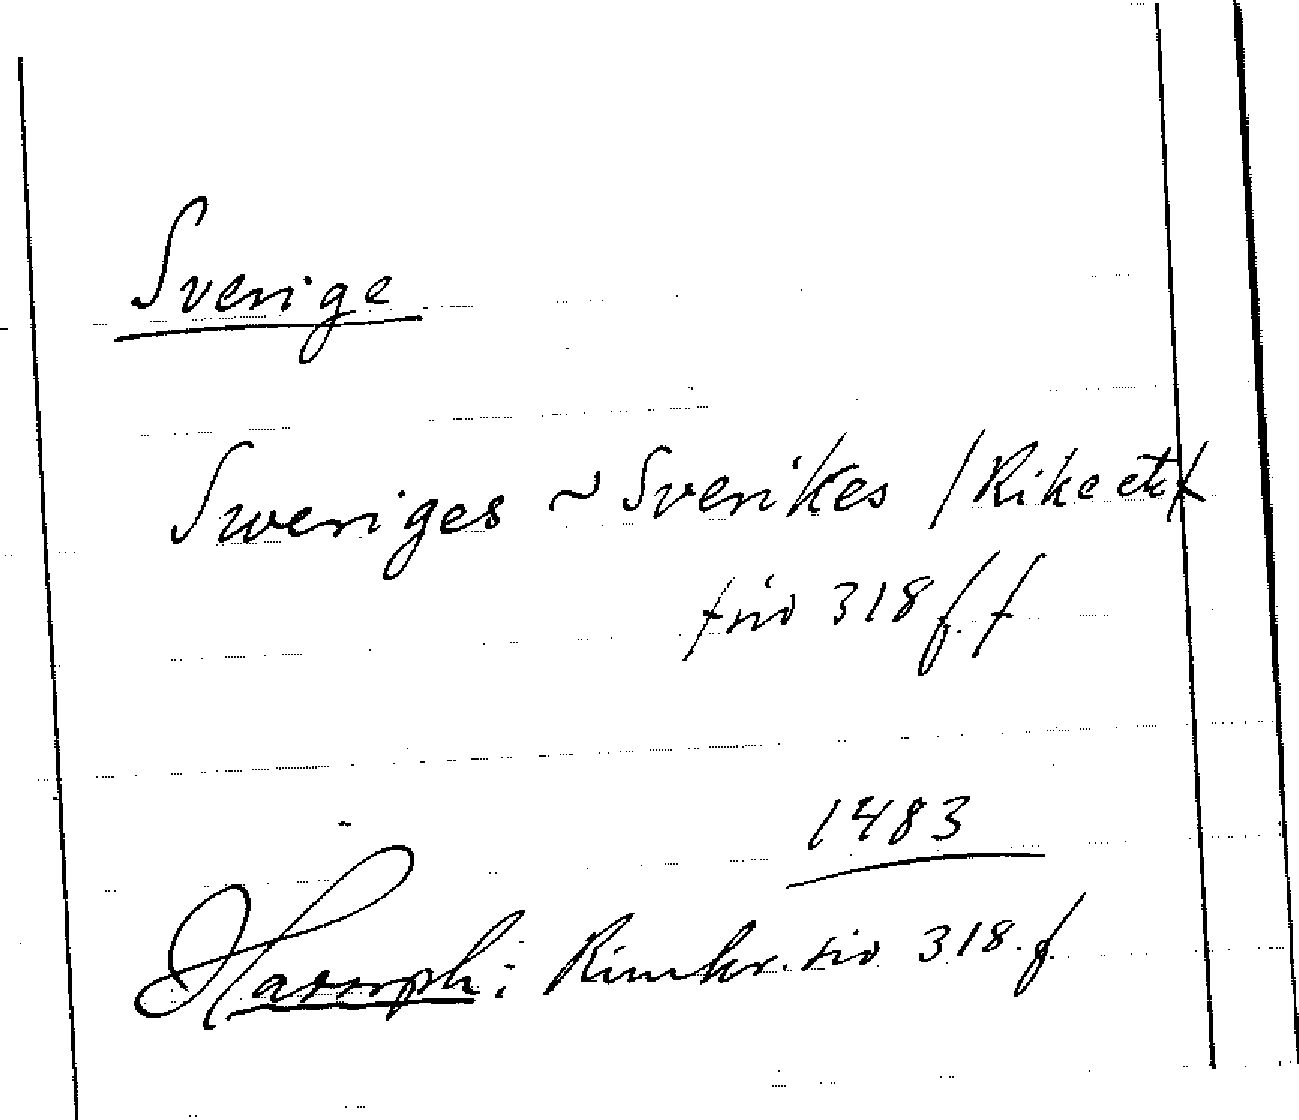 Sverige
Sweriges ~ Sverikes / Rike etc /
/ sid 318 f /
1483
Hadorph: Rimkr. sid 318. f